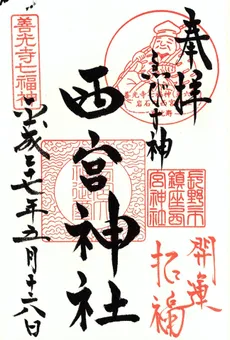 奉拝
えびす神
西宮神社
善光寺七福神
平成二十七年五月十六日
長野市
鎮座西
宮神社
開運
招福